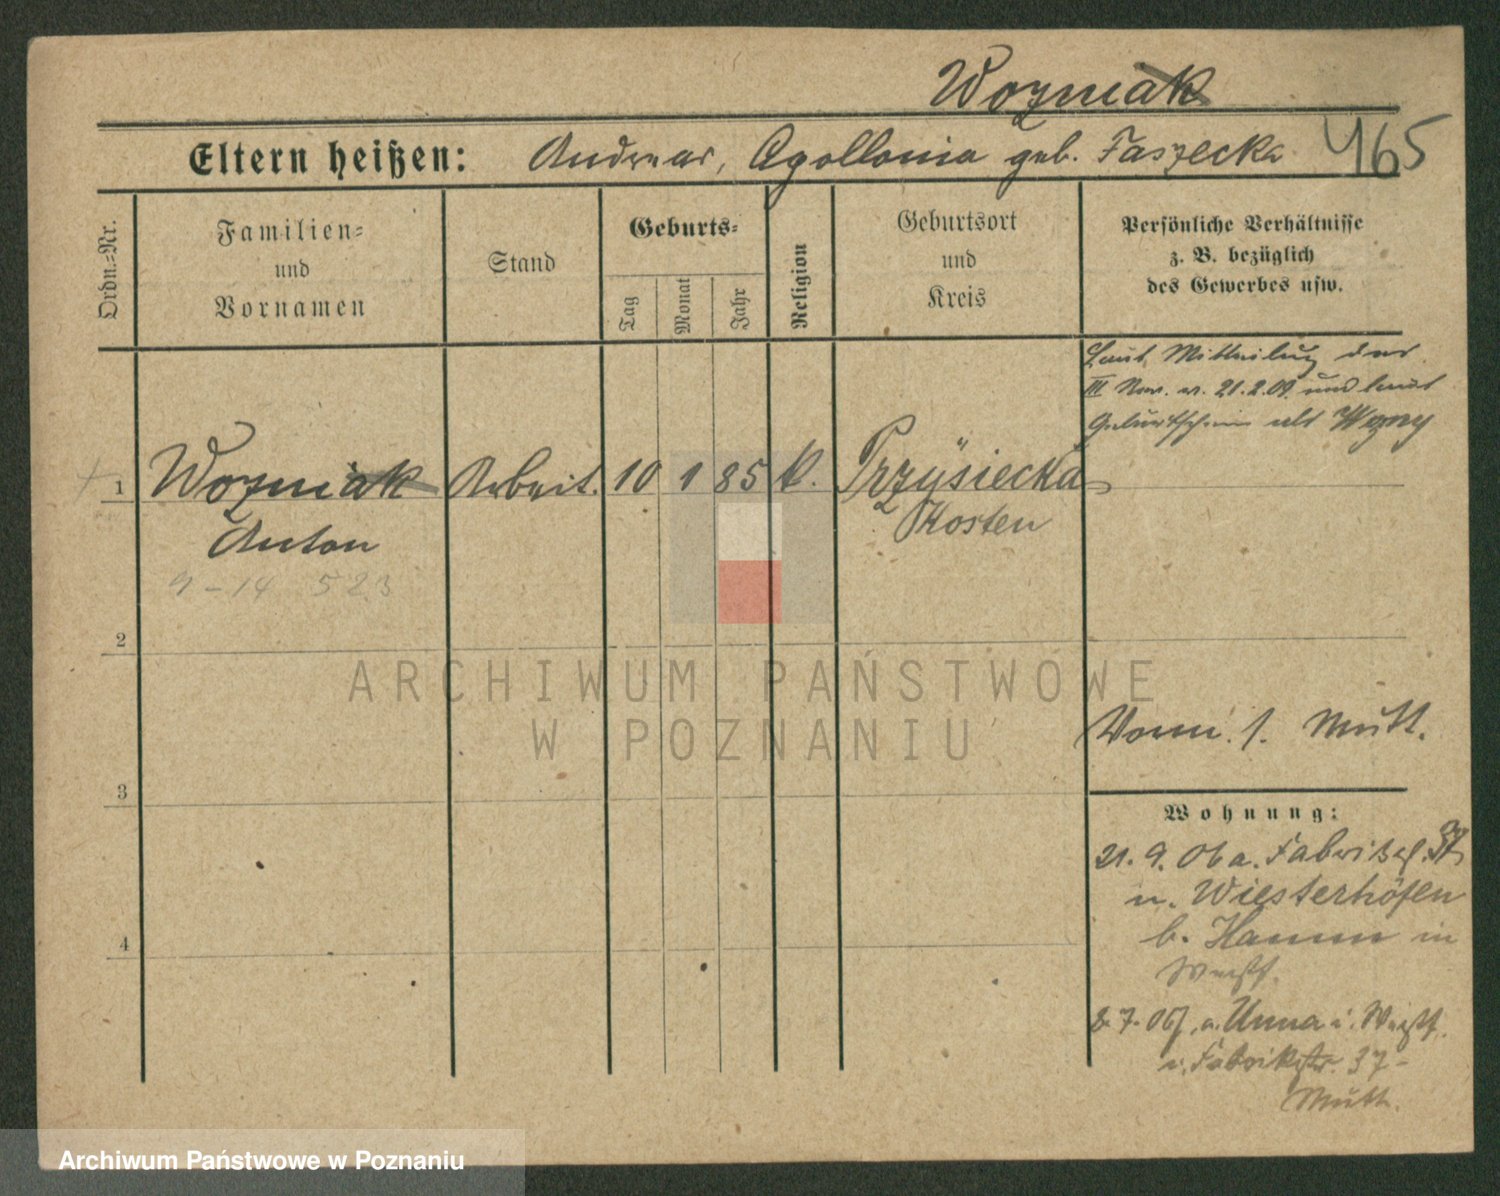 Wozniak
Eltern heißen: Andreas, Apollonia geb. Faszecka 465
Ordn.-Nr.
Familien-
und
Vornamen
Stand
Geburts-
Tag
Monat
Jahr
Religion
Geburtsort
und
Kreis
Persönliche Verhältnisse
z. B. bezüglich
des Gewerbes usw.
Laut Mitteilung der
III 21.2.09 und laut
Geburtschein
1 Wozniak Arbeit. 10 1 85 k. Przysiecka
Anton Kosten
9-14 523
2
3
4
Mutt.
Wohnung:
21.9.06 a. 37
n. Wiesterhöfen
b. Hamm in
Westf.
8.7.07. a. Unna i. Westf.
Fabrikstr. 37-
Mutt.
ARCHIWUM PAŃSTWOWE
W POZNANIU
Archiwum Państwowe w Poznaniu